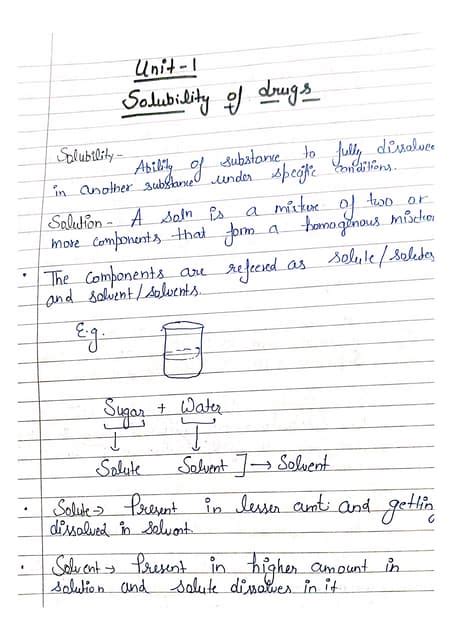 Unit-1
Solubility of drugs
Solubility - Ability of substance to fully dissolve
in another substance under specific conditions.
Solution - A soln is a mixture of two or
more components that form a homogenous mixture
• The components are refered as solute/solutes
and solvent/solvents.
E.g.
Sugar + Water
↓ ↓
Solute Solvent ] → Solvent
• Solute → Present in lesser amt and getting
dissolved in solvent.
• Solvent → Present in higher amount in
solution and solute dissolves in it.